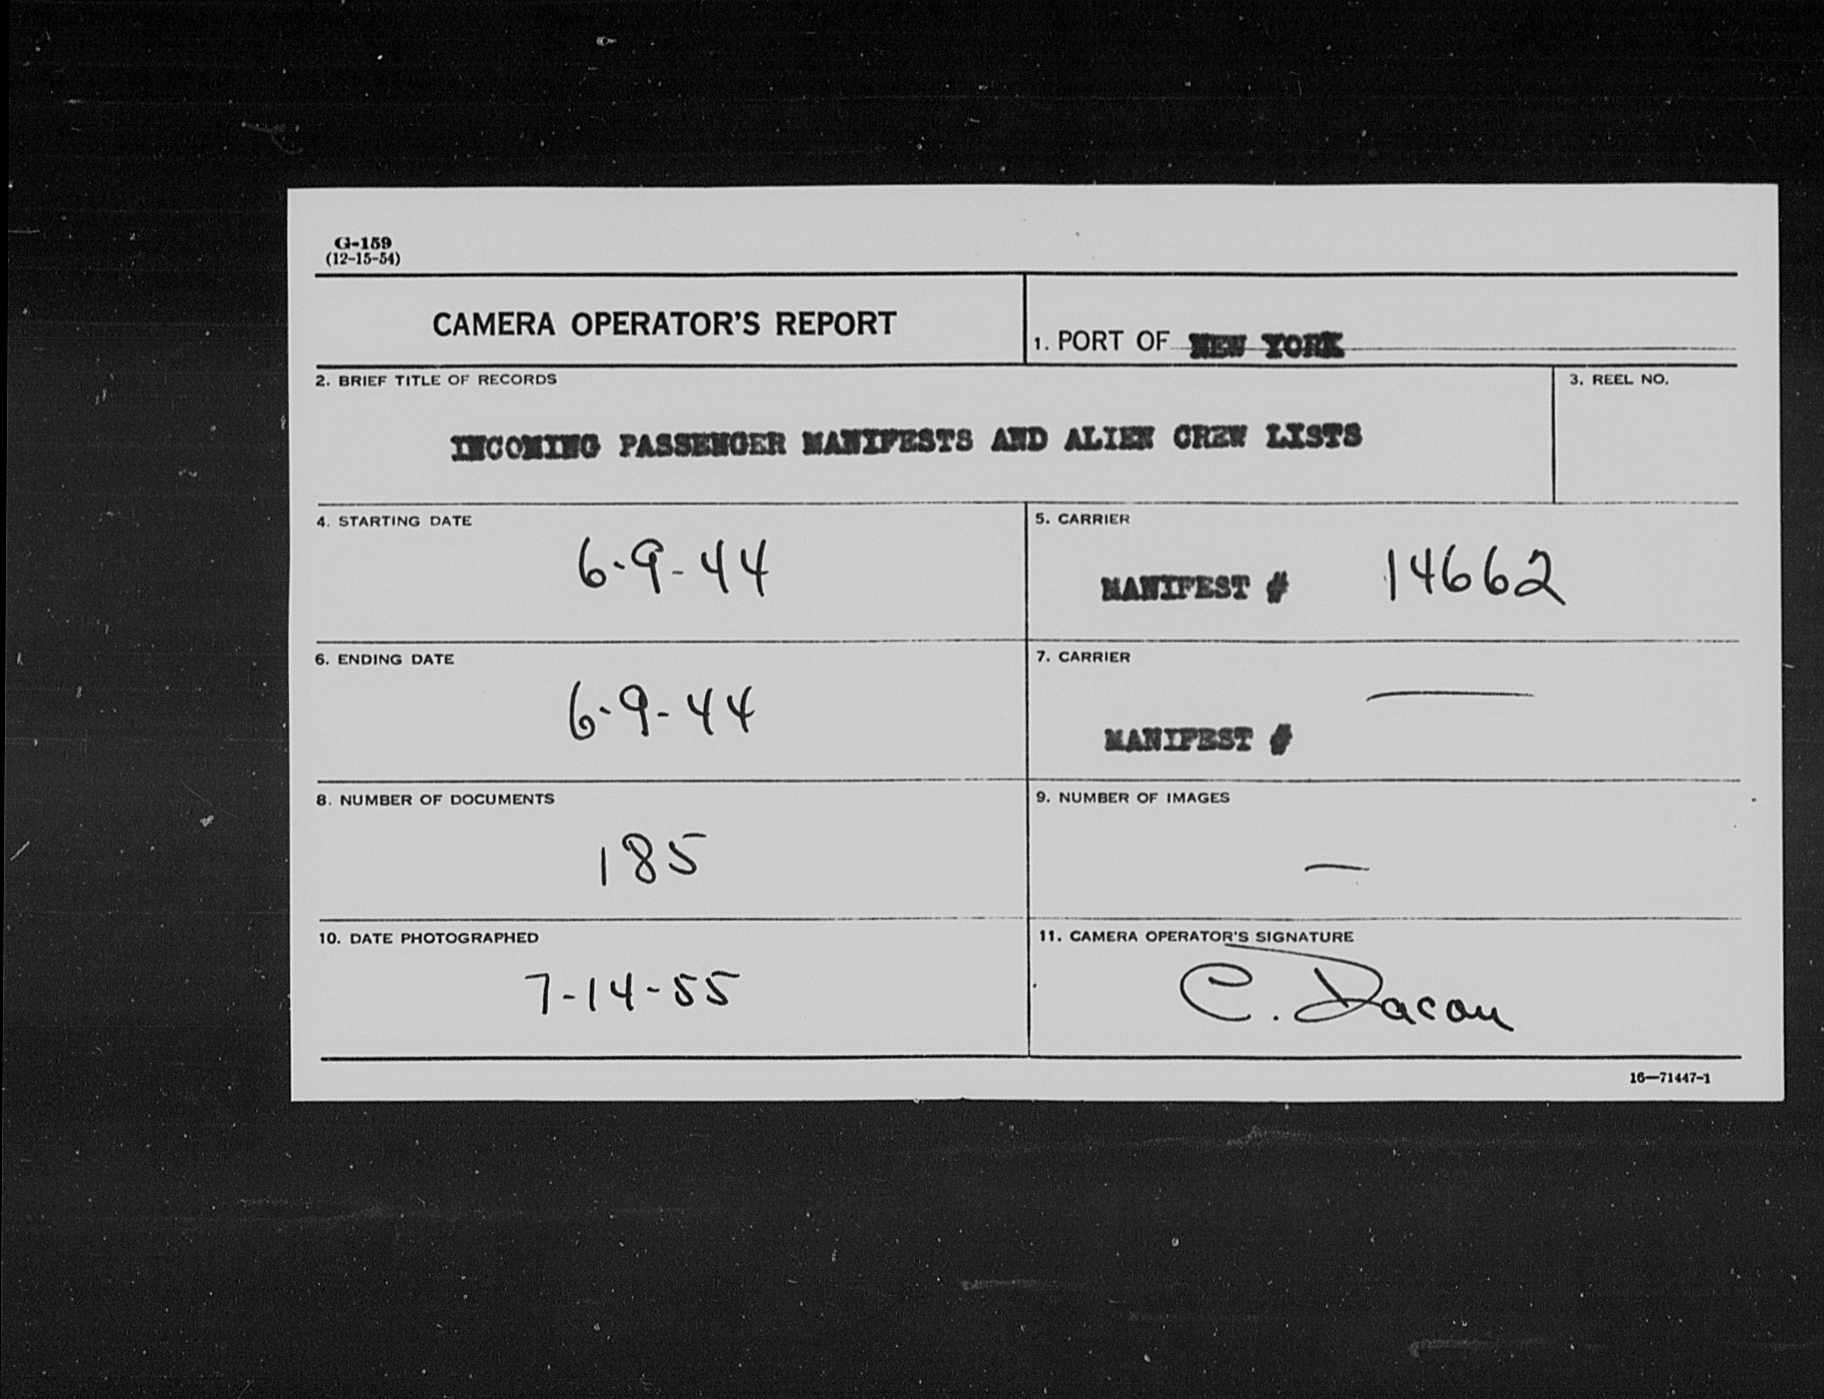 G-159
(12-15-54)
CAMERA OPERATOR'S REPORT
1. PORT OF NEW YORK
2. BRIEF TITLE OF RECORDS
3. REEL NO.
INCOMING PASSENGER MANIFESTS AND ALIEN CREW LISTS
4. STARTING DATE
5. CARRIER
6-9-44
MANIFEST # 14662
6. ENDING DATE
7. CARRIER
6-9-44
—
MANIFEST #
8. NUMBER OF DOCUMENTS
9. NUMBER OF IMAGES
185
—
10. DATE PHOTOGRAPHED
11. CAMERA OPERATOR'S SIGNATURE
7-14-55
C. Dacon
16—71447-1